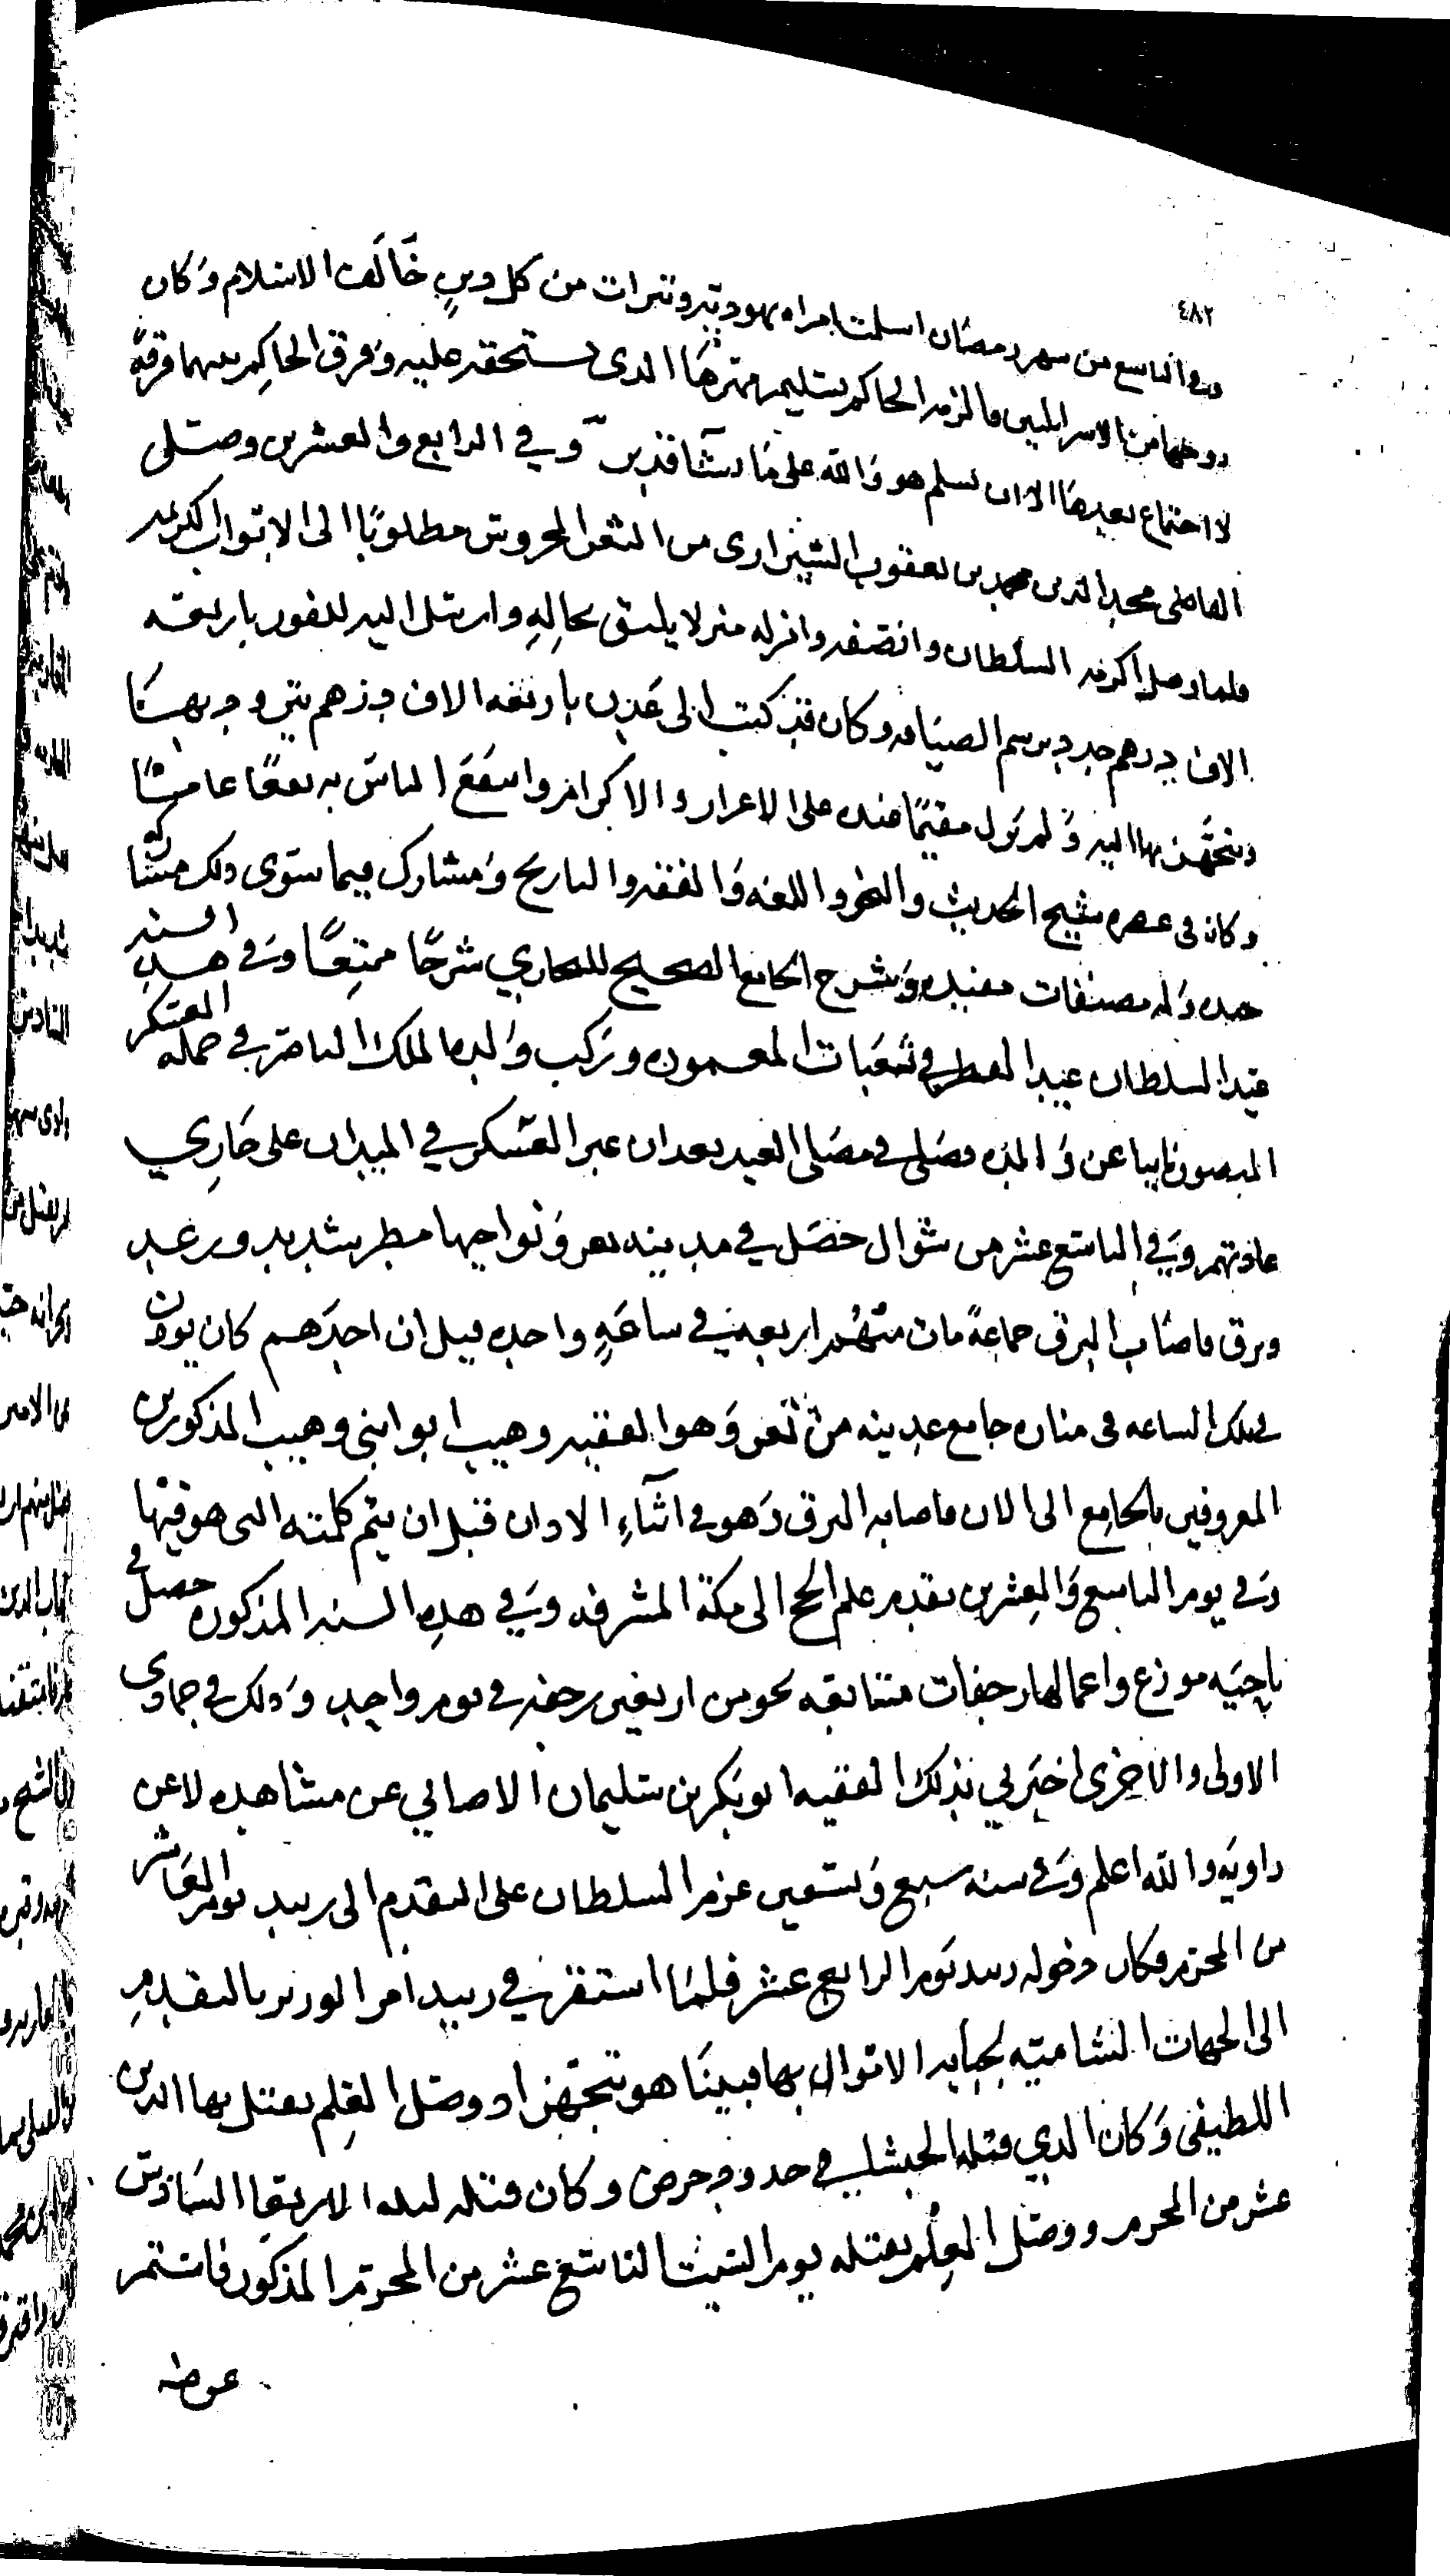 ٤٨٢
وفي التاسع من شهر رمضان اسلمت امراه يهودية وتبرات من كل دينٍ خَالَف الاسلام وكان
زوجها من الاسرايليين فالزمه الحاكم بتسليم مهرها الدى تستحقه عليه وفرق الحاكم بينهما فرقةً
لا اجتماع بعدها الا ان يسلم هو والله على ما يشآ قدير وفي الرابع والعشرين وصل
القاضي مجد الدين محمد بن يعقوب الشيرازي من الثغر المحروس مطلوبًا الى الابواب الكريمه
فلما وصل اكرمه السلطان وانصفه وانزله منزلا يليق بحالِهِ وارسل اليه للفور باربعة
الاف درهم جدد برسم الضيافه وكان قد كتب الى عدن باربعه الاف درهم يتزود بها
ويتجهز بها اليه ولم يزل مقيمًا عنده على الاعزاز والاكرام وانتفع الناس به نفعًا عامًّا
وكان في عصره شيخ الحديث والنحو واللغه والفقه والتاريخ ومشارك فيما سوى ذلك مشاركة
جيده وله مصنفات مفيده وشرح الجامع الصحيح للبخاري شرحًا ممتعًا وفي هذه السنه
عيد السلطان عيد الفطر في ثعبات المعموره وركب والده الملك الناصر في جمله العسكر
المنصور نايبا عن والده فصلى في مصلى العيد بعد ان عبر العسكر في الميدان على جاري
عادتهم وفي التاسع عشر من شوال حصل في مدينه تعز ونواحيها مطر شديد ورعد
وبرق فاصاب البرق جماعةً مات منهم اربعه في ساعةٍ واحده قيل ان احدهم كان يوذن
في تلك الساعه في مناره جامع عدينه من تعز وهو الفقيه وهيب ابو ابني وهيب المذكورين
المعروفين بالجامع الى الان فاصابه البرق وهو في اثنآءِ الاذان قبل ان يتم كلمته التى هو فيها
وفي يوم التاسع والعشرين تقدم علم الحج الى مكة المشرفه وفي هذه السنه المذكوره حصل في
ناحيه موزع واعمالها رجفات متتابعه نحو من اربعين رجفه في يوم واحد وذلك في جمادى
الاولى والاخرى اخبرني بذلك الفقيه ابو بكر بن سليمان الاصابي عن مشاهده لا عن
روايه والله اعلم وفي سنه سبع وتسعين عزم السلطان على التقدم الى زبيد يوم العاشر
من المحرم فكان دخوله زبيد يوم الرابع عشر فلما استقر في زبيد امر الوزير بالتقدم
الى الجهات الشاميه لجبايه الاموال بها فبينا هو يتجهز اذ وصل العلم بقتل بها الدين
اللطيفي وكان الذي قتله الحبشلي في حدود حرض وكان قتله ليله الاربعا السادس
عشر من المحرم ووصل العلم بقتله يوم السبت التاسع عشر من المحرم المذكور فاستمر
عوضه